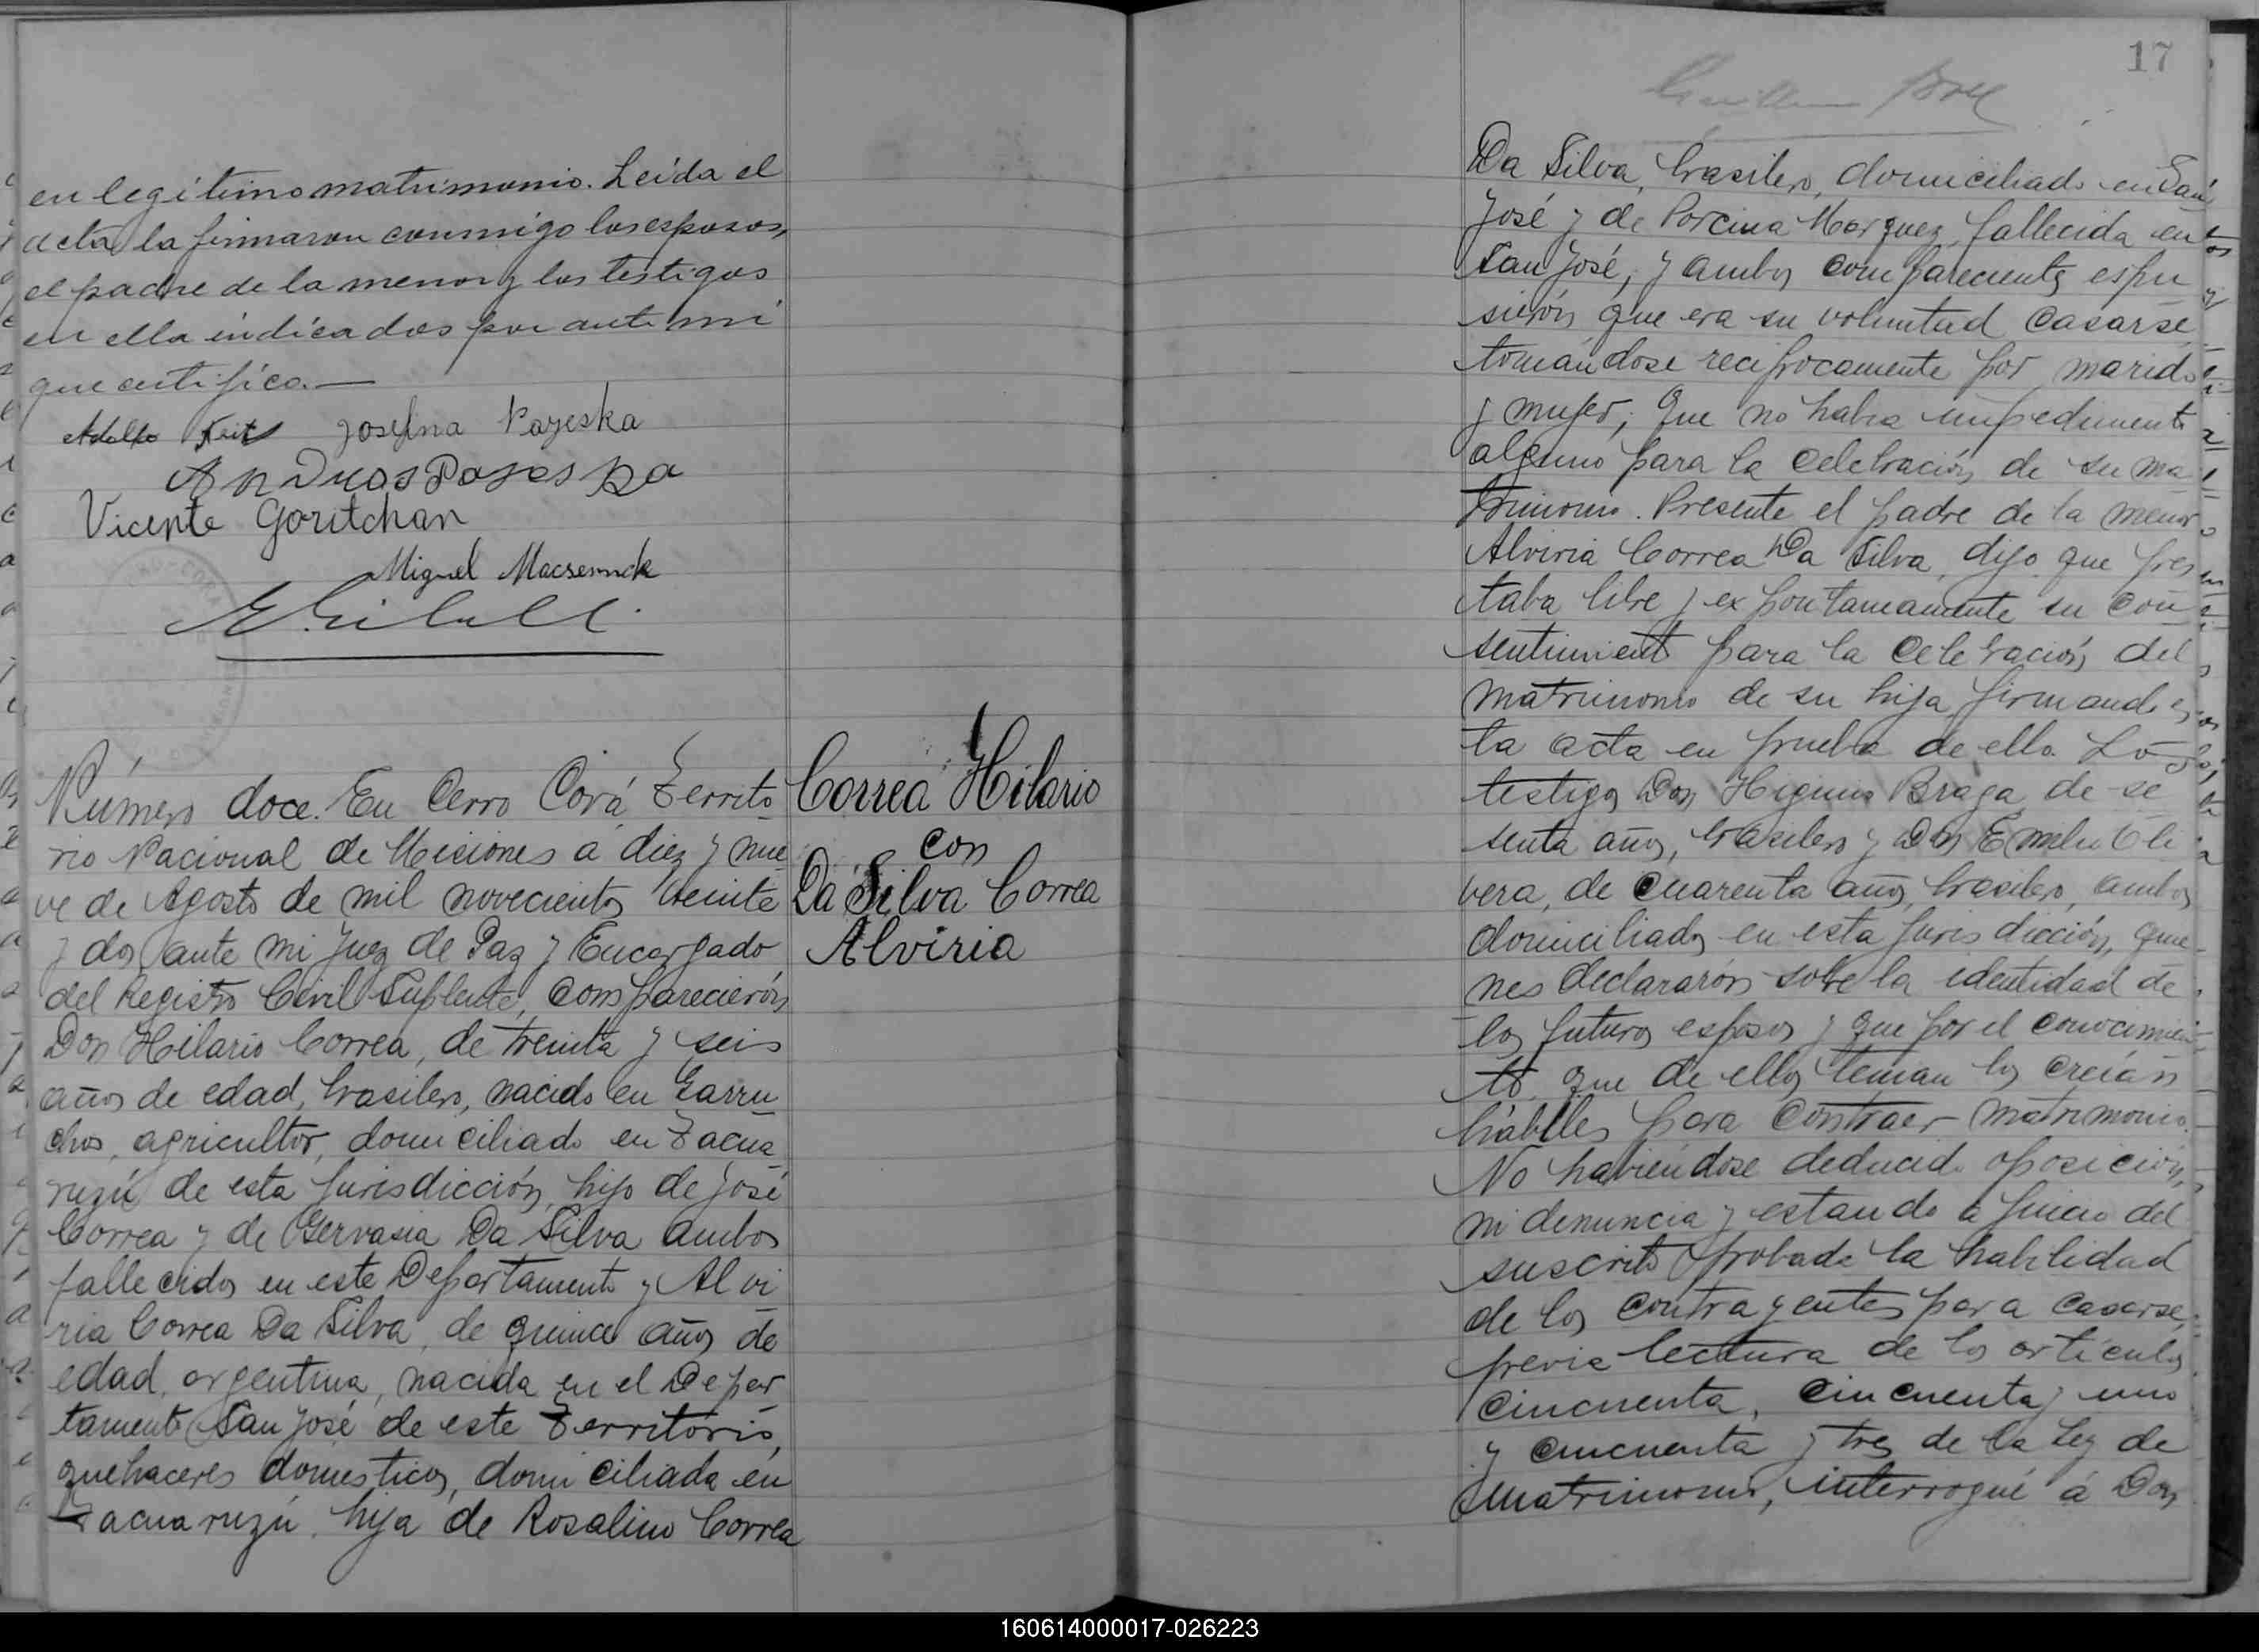 en legítimo matrimonio. Leída el
acta la firmaron conmigo los esposos,
el padre de la menor y los testigos
en ella indicados por ante mi
que certifico.—
Adolfo Josefina Pazeska
Vicente Goritchan
Miguel
Número doce. En Cerro Corá Territo
rio Nacional de Misiones a diez y nue
ve de Agosto de mil novecientos veinte
y dos ante mi Juez de Paz y Encargado
del Registro Civil Suplente, comparecierón
Don Hilario Correa, de treinta y seis
años de edad, brasilero, nacido en Garru
chos, agricultor, domiciliado en Tacua
ruzú de esta Jurisdicción, hijo de José
Correa y de Gervasia Da Silva ambos
fallecidos en este Departamento y Alvi
ria Correa Da Silva, de quince años de
edad, argentina, nacida en el Depar
tamento San José de este Territorio,
quehaceres domesticos, domiciliada en
Tacuaruzú, hija de Rosalino Correa
Correa Hilario
con
Da Silva Correa
Alviria
17
Da Silva, brasilero, domiciliado en San
José y de Porcina Marquez, fallecida en
San José, y ambos comparecientes espu
sierón que era su voluntad casarse
tomándose reciprocamente por marido
y mujer; que no habia impedimento
alguno para la celebración de su ma
trimonio. Presente el padre de la menor
Alviria Correa Da Silva, dijo que pres
taba libre y expontaneamente su con
sentimiento para la celebración del
matrimonio de su hija firmando es
ta acta en prueba de ello. Los
testigos Don Higinio Braga, de se
senta años, brasilero y Don Emilio Oli
vera, de cuarenta años, brasilero, ambos
domiciliados en esta jurisdicción, quie
nes declararón sobre la identidad de
los futuros esposos y que por el conocimien
to que de ellos tenian los creían
hábiles para contraer matrimonio.
No habiendose deducido oposición,
ni denuncia y estando a juicio del
suscrito probada la habilidad
de los contrayentes para casarse,
previa lectura de los articulos
cincuenta, cincuenta y uno
y cincuenta y tres de la Ley de
matrimonio, interrogué á Don
160614000017-026223